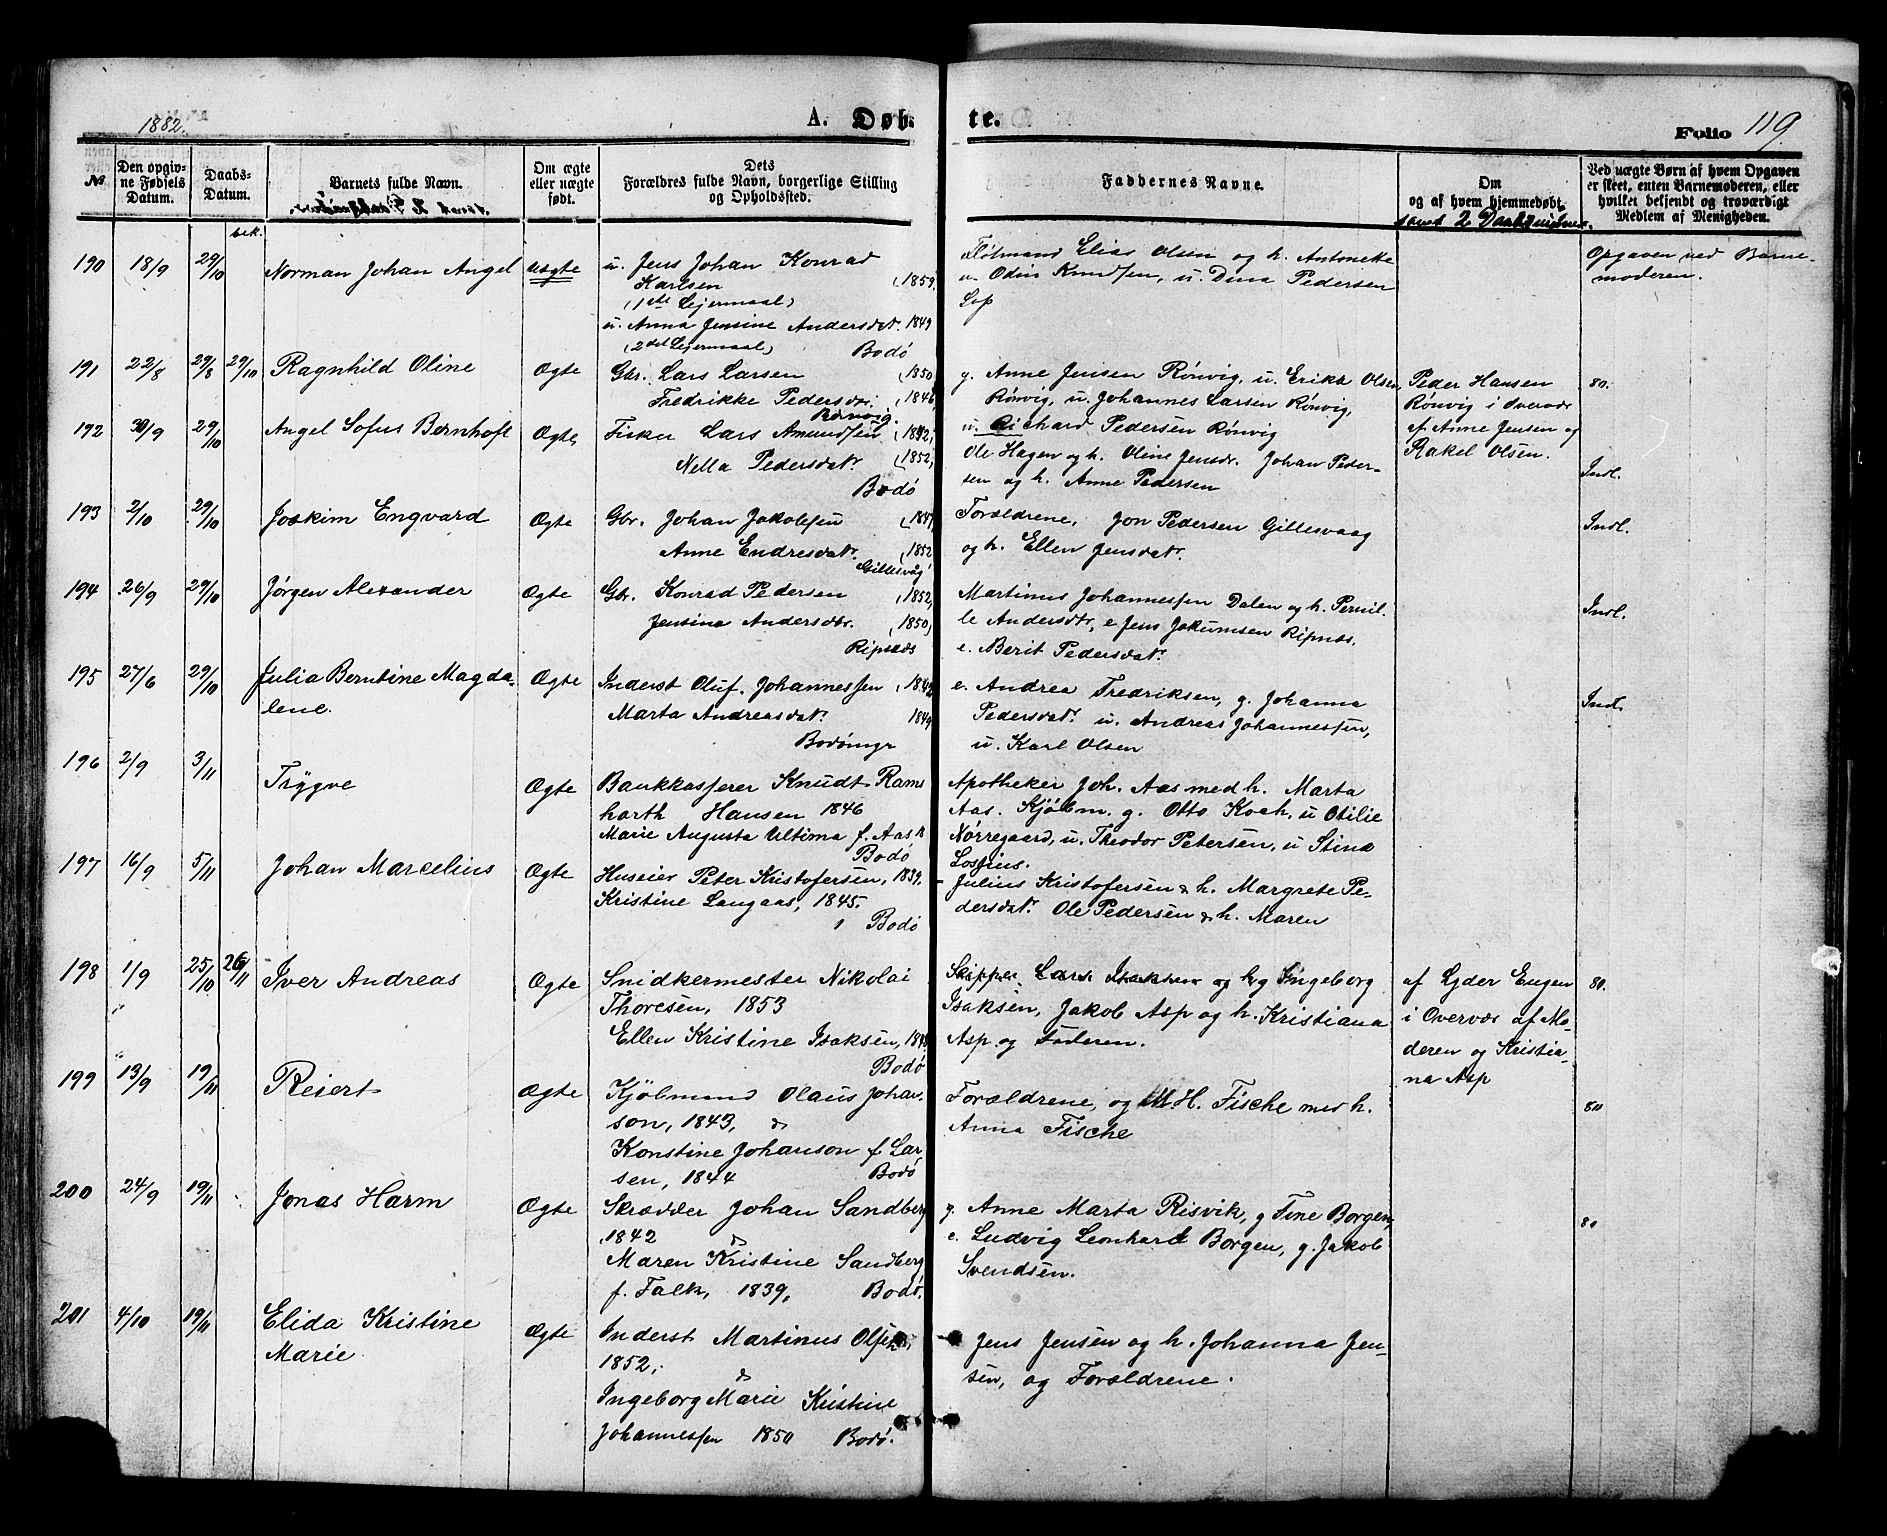 1882.
A. Døb-
te.
Folio 119
№
Den opgiv-
ne Fødsels
Datum.
Daabs-
Datum.
Barnets fulde Navn.
Om ægte
eller uægte
født.
Dets
Forældres fulde Navn, borgerlige Stilling
og Opholdssted.
Faddernes Navne.
Om
og af hvem hjemmedøbt.
samt 2 Daabsvidner.
Ved uægte Børn af hvem Opgaven
er skeet, enten Barnemoderen, eller
hvilket bekjendt og troværdigt
Medlem af Menigheden.
bek.
190 18/9 29/10 Norman Johan Angel uægte
u. Jens Johan Konrad
Karlsen 1859,
(1ste Lejermaal)
u. Anna Jensine Andersdatr. 1849
(2det Lejermaal) Bodö
Fløtmand Elias Olsen og h. Antonette
u. Odin Knudsen, u. Dina Pedersen
Løp
Opgaven ved Barne-
moderen.
191 22/8 29/8 29/10 Ragnhild Oline Ægte
Gbr. Lars Larsen 1850
Fredrikke Pedersdtr. 1846,
Rönvig
g. Anne Jensen Rönvig, u. Erika Olsen
Rönvig, u. Johannes Larsen Rönvig,
u. Richard Pedersen Rönvig
Peder Hansen
Rönvig i Overvær
af Anne Jensen og
Rakel Olsen.
80.
192 30/9 29/10 Angel Sofus Bernhoft Ægte
Fisker Lars Amundsen 1842,
Nella Pedersdatr. 1852,
Bodö
Ole Hagen og h. Oline Jensdr. Johan Peder-
sen og h. Anne Pedersen
Indl.
193 2/10 29/10 Joakim Engvard Ægte
Gbr. Johan Jakobsen 1847,
Anne Endresdatr. 1852
Gillesvåg
Forældrene, Jon Pedersen Gillesvaag
og h. Ellen Jensdatr.
Indl.
194 26/9 29/10 Jörgen Alexander Ægte
Gbr. Konrad Pedersen 1852,
Jensina Andersdtr. 1850,
Ripnæs
Martinus Johannessen Dalen og h. Pernil-
le Andersdtr, e Jens Jokumsen Ripnæs.
e. Berit Pedersdatr.
Indl.
195 27/6 29/10 Julia Berntine Magda-
lene.
Ægte
Inderst Oluf Johannessen 1842
Marta Andreasdatr. 1849
Bodömyr
e. Andrea Fredriksen, g. Johanna
Pedersdatr. u. Andreas Johannessen,
u. Karl Olsen
Indl.
196 2/9 3/11 Trygve Ægte
Bankkasserer Knudt Ram-
harth Hansen 1846
Marie Augusta Ultima f. Aas
Bodö
Apotheker Joh. Aas med h. Marta
Aas. Kjöbm. g. Otto Koch, u Otilie
Nørregaard, u. Theodor Petersen, u Stina
Lossius.
197 16/9 5/11 Johan Marcelius Ægte
Huseier Peter Kristofersen, 1839,
Kristine Langaas, 1845.
Bodö
Julius Kristofersen & h. Margrete Pe-
dersdatr. Ole Pedersen & h. Maren
198 1/9 25/10 26/11 Iver Andreas Ægte
Snidkermester Nikolai
Thoresen, 1853
Ellen Kristine Isaksen, 1848
Bodö
Skipper Lars Isaksen og h. Ingeborg
Isaksen, Jakob Asp og h. Kristiana
Asp og Faderen.
af Lyder Eugen
i Overvær af Mo-
deren og Kristia-
na Asp
80.
199 13/9 19/11 Reiert Ægte
Kjöbmand Olaus Johan-
son, 1843, &
Konstine Johanson f. Lar-
sen, 1844 Bodö
Forældrene, og M. H. Fische med h.
Anna Fische
80
200 24/9 19/11 Jonas Harm Ægte
Skrædder Johan Sandberg
1842 &
Maren Kristine Sandberg
f. Falk, 1839, Bodö.
g. Anne Marta Risvik, g Fine Borgen,
e. Ludvig Leonhard Borgen, g. Jakob
Svendsen.
80
201 4/10 19/11 Elida Kristine
Marie
Ægte
Inderst Martinus Olsen,
1852, &
Ingeborg Marie Kristine
Johannessen 1850 Bodö.
Jens Jensen og h. Johanna Jen-
sen, og Forældrene.